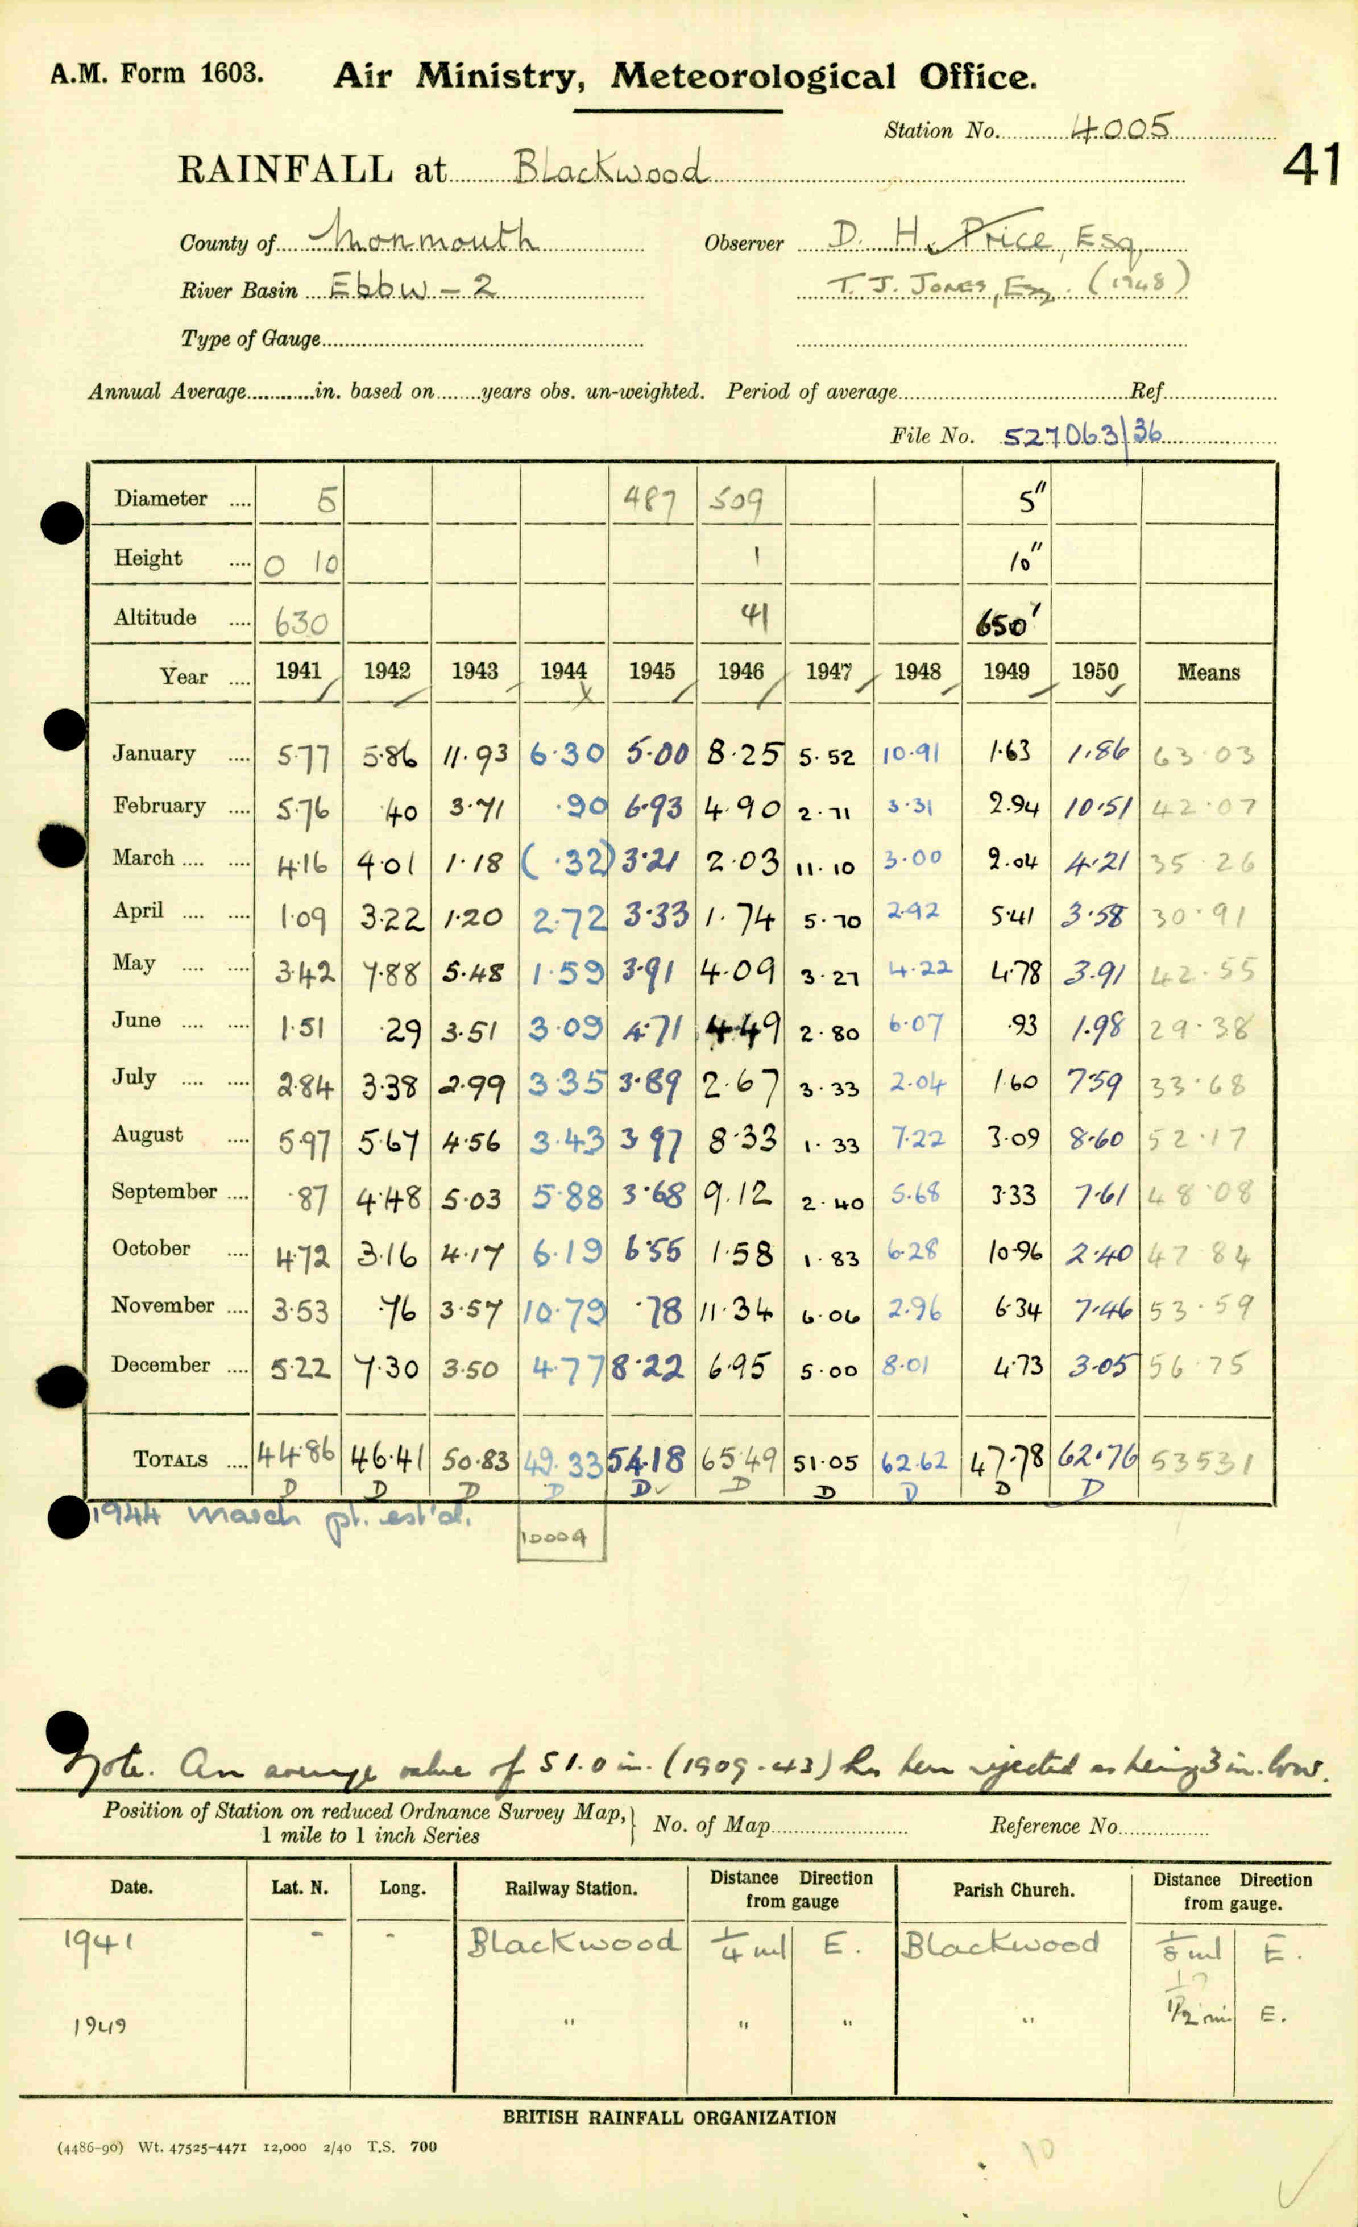 A.M. Form 1603. Air Ministry, Meteorological Office.
Station No. 4005
41
RAINFALL at Blackwood
County of Monmouth Observer D. H. Price, Esq.
River Basin Ebbw - 2 T. J. Jones, Esq. (1948)
Type of Gauge
Annual Average in. based on years obs. un-weighted. Period of average Ref.
File No. 527063/36
Diameter .... 5 487 509 5"
Height .... 0 10 1 10"
Altitude .... 630 41 650'
Year .... 1941 1942 1943 1944 1945 1946 1947 1948 1949 1950 Means
January .... 5.77 5.86 11.93 6.30 5.00 8.25 5.52 10.91 1.63 1.86 63.03
February .... 5.76 .40 3.71 .90 6.93 4.90 2.71 3.31 2.94 10.51 42.07
March .... .... 4.16 4.01 1.18 ( .32) 3.21 2.03 11.10 3.00 2.04 4.21 35 26
April .... .... 1.09 3.22 1.20 2.72 3.33 1.74 5.70 2.92 5.41 3.58 30.91
May .... .... 3.42 7.88 5.48 1.59 3.91 4.09 3.27 4.22 4.78 3.91 42.55
June .... .... 1.51 .29 3.51 3.09 4.71 4.49 2.80 6.07 .93 1.98 29.38
July .... .... 2.84 3.38 2.99 3.35 3.89 2.67 3.33 2.04 1.60 7.59 33.68
August .... 5.97 5.67 4.56 3.43 3.97 8.33 1.33 7.22 3.09 8.60 52.17
September .... .87 4.48 5.03 5.88 3.68 9.12 2.40 5.68 3.33 7.61 48.08
October .... 4.72 3.16 4.17 6.19 6.55 1.58 1.83 6.28 10.96 2.40 47 84
November .... 3.53 .76 3.57 10.79 .78 11.34 6.06 2.96 6.34 7.46 53.59
December .... 5.22 7.30 3.50 4.77 8.22 6.95 5.00 8.01 4.73 3.05 56.75
TOTALS .... 44.86 46.41 50.83 49.33 54.18 65.49 51.05 62.62 47.78 62.76 53531
D D D D D D D D D D
1944 March pt. est'd.
Note. An average value of 51.0 in. (1909-43) has been rejected as being 3 in. low.
Position of Station on reduced Ordnance Survey Map, No. of Map Reference No.
1 mile to 1 inch Series
Date. Lat. N. Long. Railway Station. Distance Direction from gauge Parish Church. Distance Direction from gauge.
1941 - - Blackwood 1/4 ml E. Blackwood 1/8 ml E.
1949 " " " " 1/2 mi E.
BRITISH RAINFALL ORGANIZATION
(4486-90) Wt. 47525-4471 12,000 2/40 T.S. 700
10